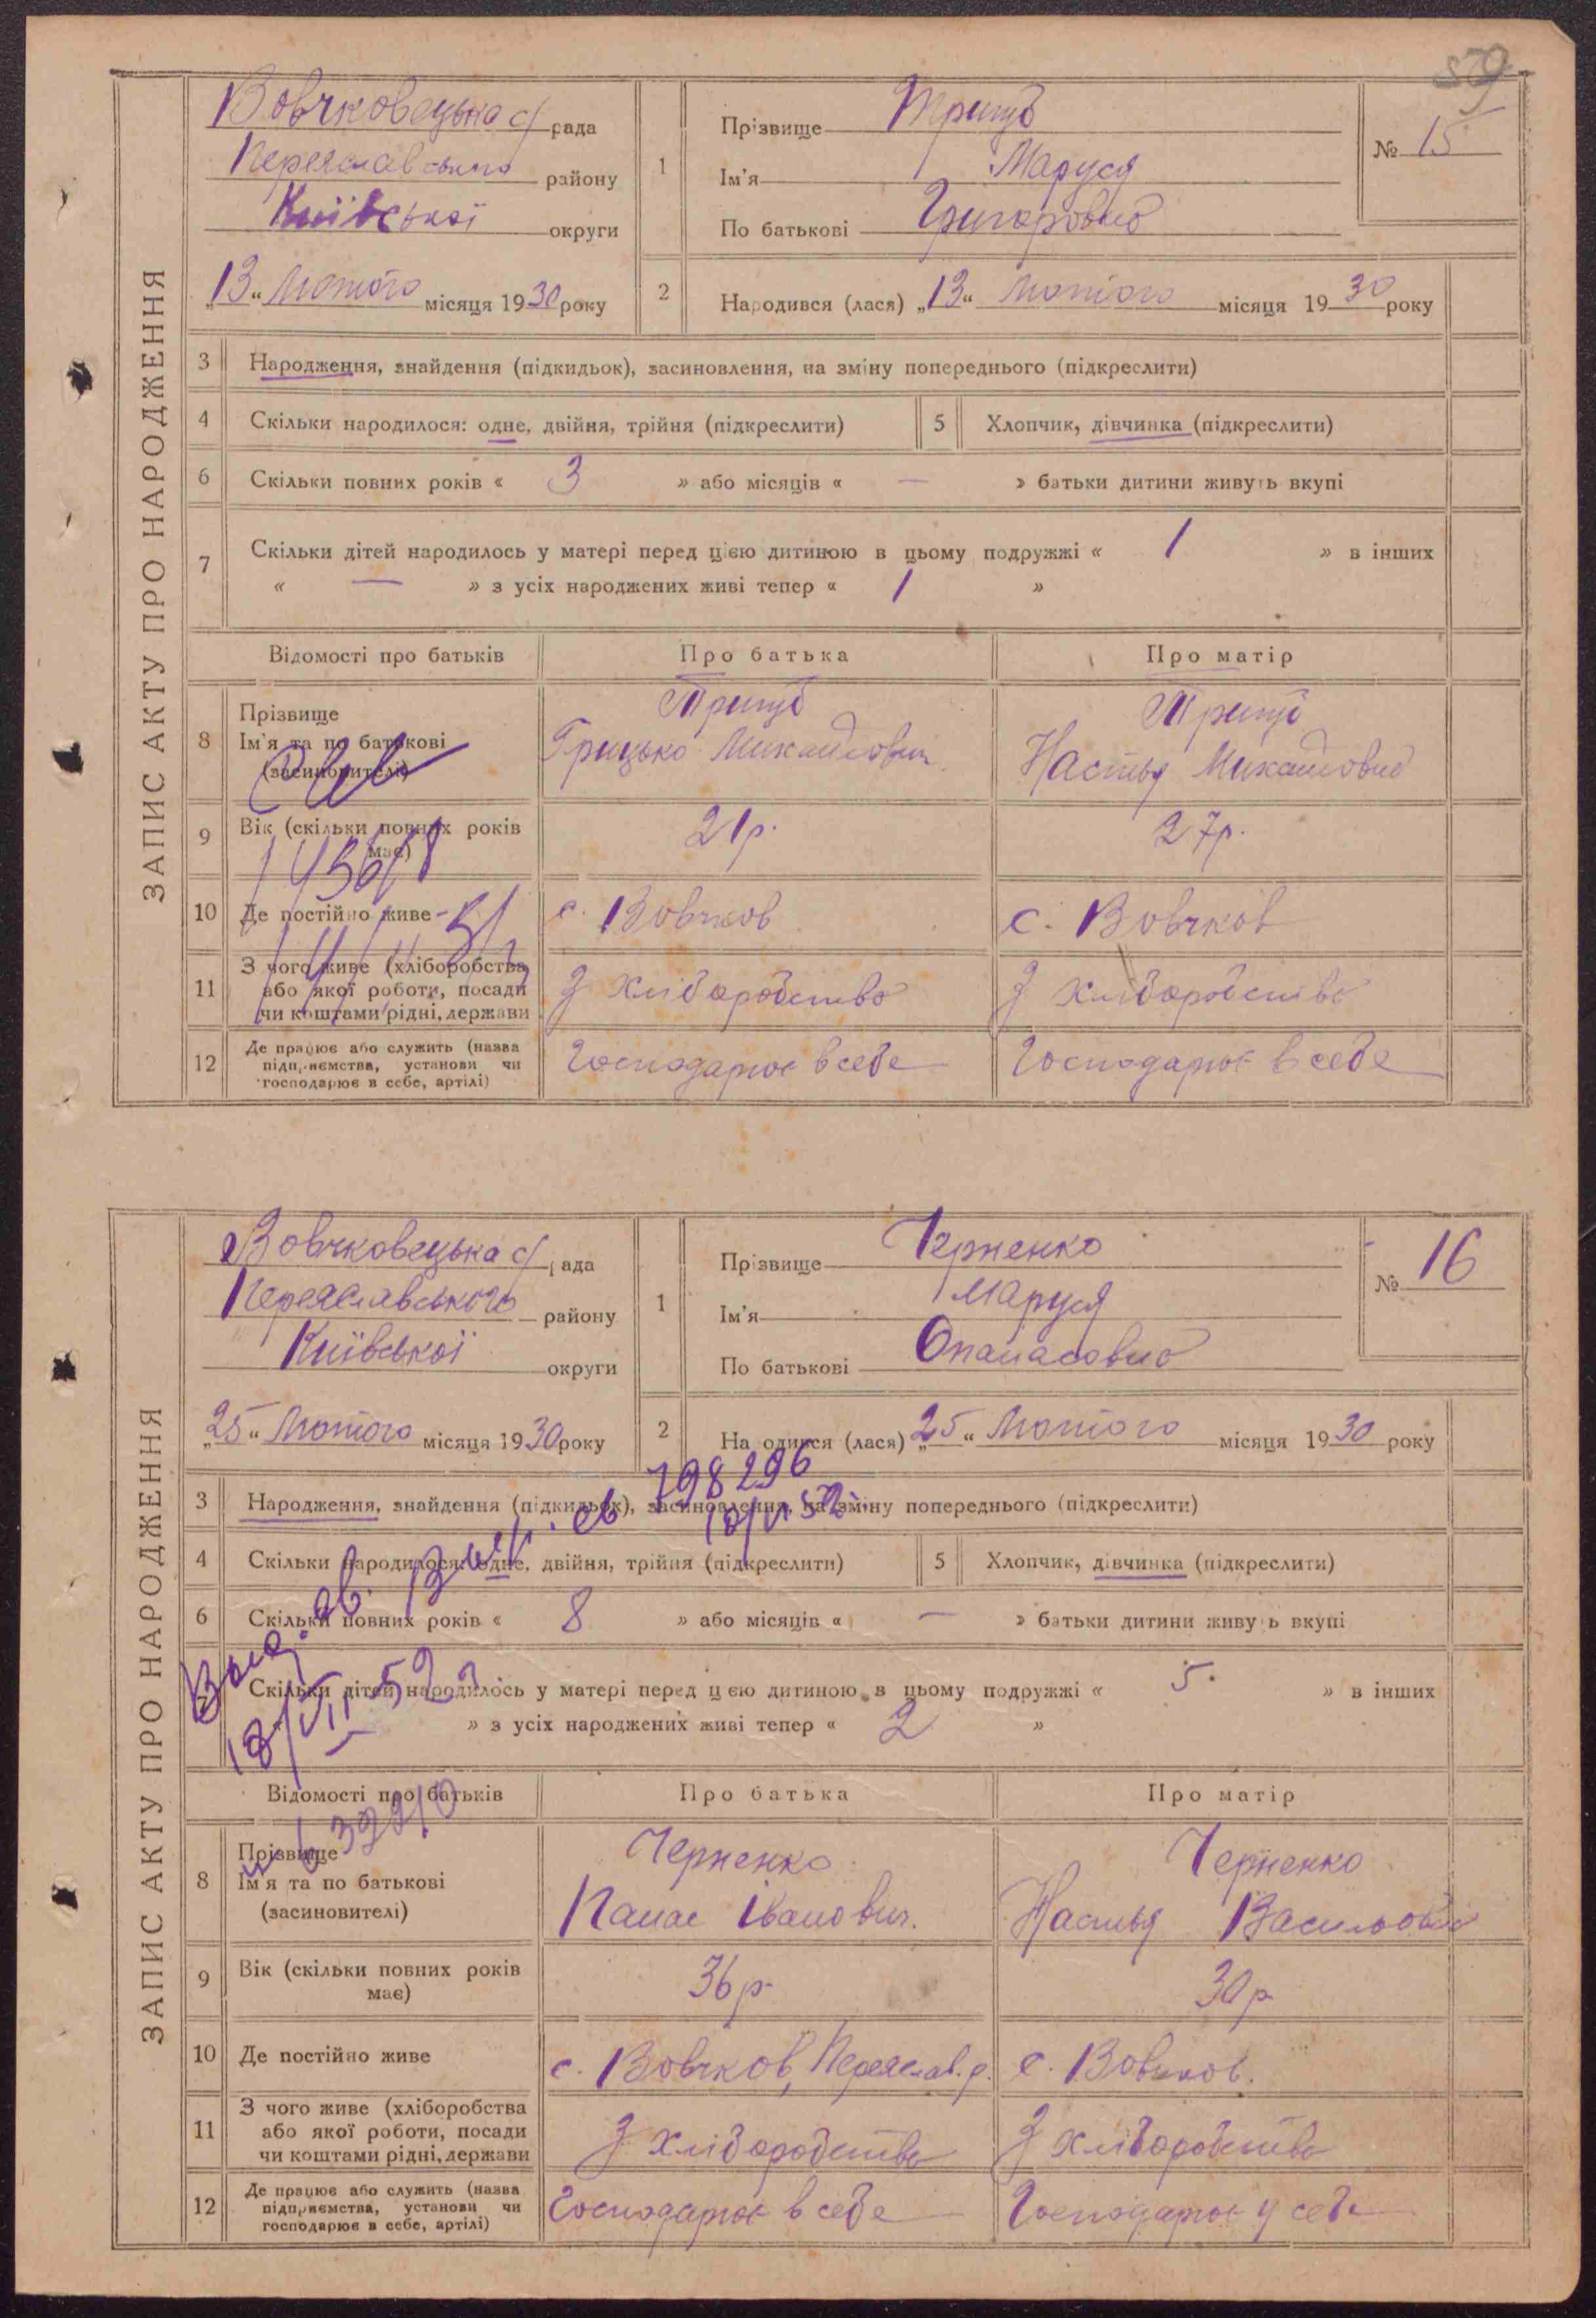 ЗАПИС АКТУ ПРО НАРОДЖЕННЯ
Вовчковецька с/рада
Переяславського району
Київської округи
„13“ Лютого місяця 1930 року
1
Прізвище Трипуб
Ім'я Маруся
По батькові Григоровно
№ 15
2 Народився (лася) „13“ Лютого місяця 1930 року
3 Народження, знайдення (підкидьок), засиновлення, на зміну попереднього (підкреслити)
4 Скільки народилося: одне, двійня, трійня (підкреслити) 5 Хлопчик, дівчинка (підкреслити)
6 Скільки повних років « 3 » або місяців « — » батьки дитини живуть вкупі
7 Скільки дітей народилось у матері перед цією дитиною в цьому подружжі « 1 » в інших
« — » з усіх народжених живі тепер « 1 »
Відомості про батьків Про батька Про матір
8 Прізвище Трипуб Трипуб
Ім'я та по батькові Грицько Михайлович Настья Михайловно
(засиновителі)
9 Вік (скільки повних років має) 21р. 27р.
10 Де постійно живе с. Вовчков с. Вовчков
11 З чого живе (хліборобства
або якої роботи, посади З хліборобство З хліборобство
чи коштами рідні, держави
12 Де працює або служить (назва
підприємства, установи чи Господарює в себе Господарює в себе
господарює в себе, артілі)
ЗАПИС АКТУ ПРО НАРОДЖЕННЯ
Вовчковецька с/рада
Переяславського району
Київської округи
„25“ Лютого місяця 1930 року
1
Прізвище Черненко
Ім'я Маруся
По батькові Опанасовно
№ 16
2 Народився (лася) „25“ Лютого місяця 1930 року
798296
18/VI 52
3 Народження, знайдення (підкидьок), засиновлення, на зміну попереднього (підкреслити)
4 Скільки народилося: одне, двійня, трійня (підкреслити) 5 Хлопчик, дівчинка (підкреслити)
6 Скільки повних років « 8 » або місяців « — » батьки дитини живуть вкупі
7 Скільки дітей народилось у матері перед цією дитиною в цьому подружжі « 5 » в інших
18/VII 52
» з усіх народжених живі тепер « 2 »
Відомості про батьків Про батька Про матір
8 Прізвище Черненко Черненко
Ім'я та по батькові Панас Іванович. Настья Васильовно
(засиновителі)
9 Вік (скільки повних років має) 36р. 30р
10 Де постійно живе с. Вовчков, Переяслав. р. с. Вовчков.
11 З чого живе (хліборобства
або якої роботи, посади З хліборобство З хліборобство
чи коштами рідні, держави
12 Де працює або служить (назва
підприємства, установи чи Господарює в себе Господарює у себе
господарює в себе, артілі)